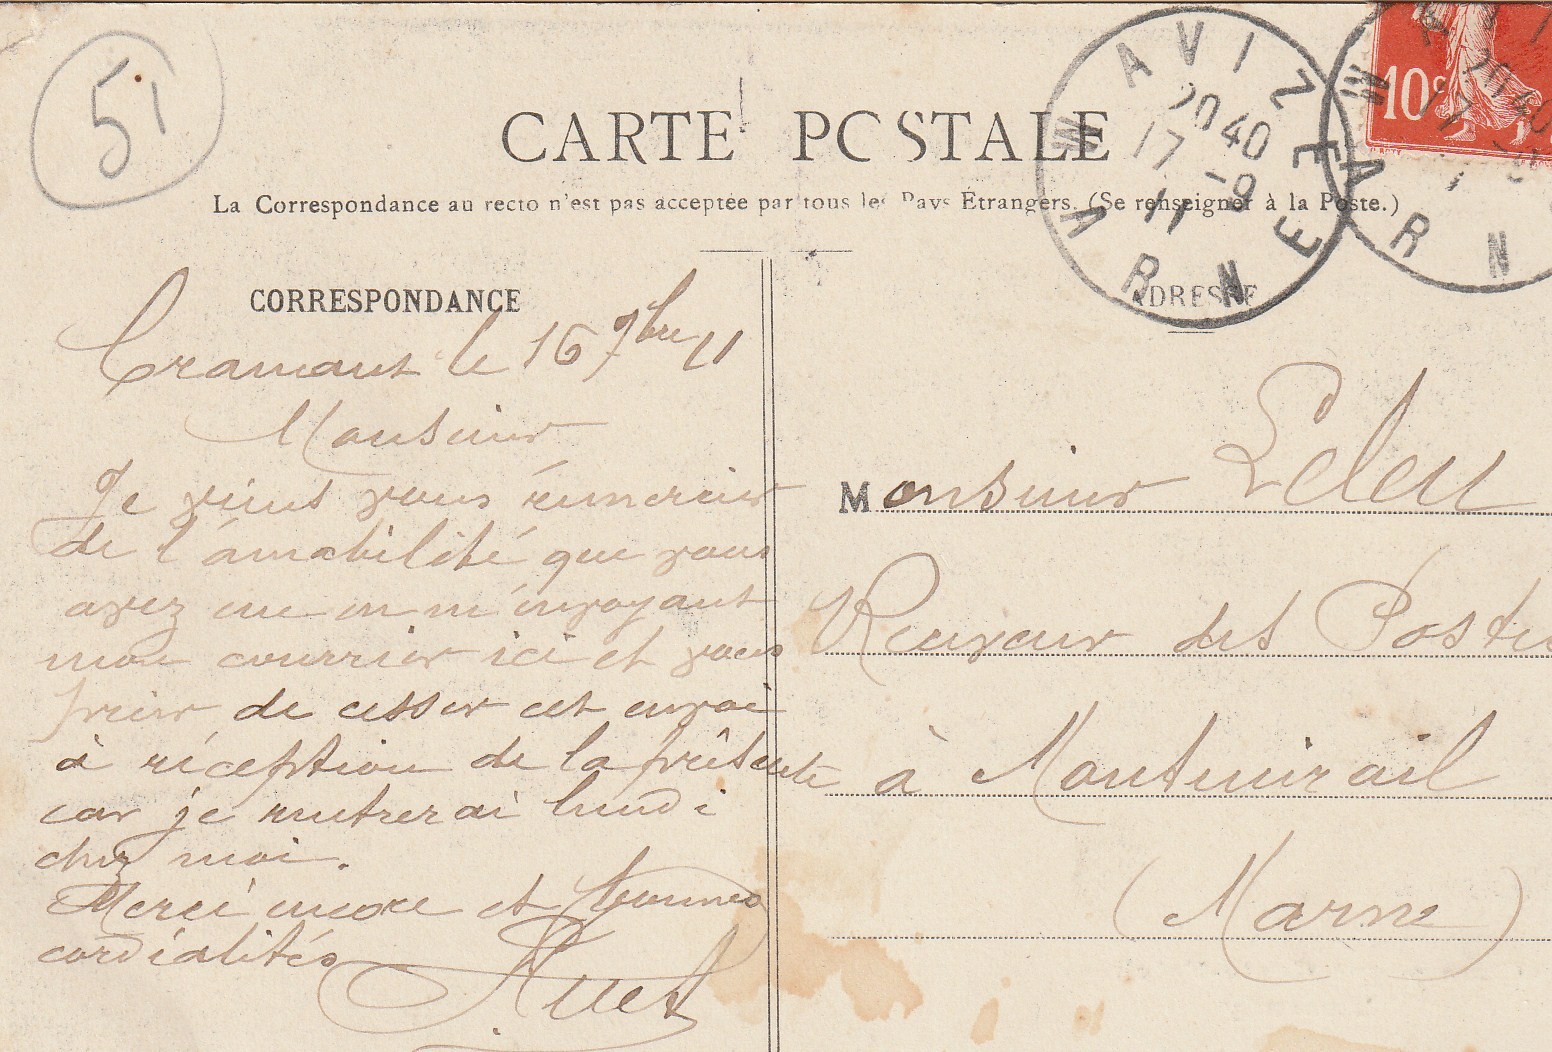 51
CARTE POSTALE
La Correspondance au recto n'est pas acceptée par tous les Pays Étrangers. (Se renseigner à la Poste.)
AVIZE
MARNE
20 40
17 -9
11
10c
MARN
CORRESPONDANCE
ADRESSE
Cramant le 16 7bre 11
Monsieur
Je viens vous rémercier
de l'amabilité que vous
avez eue en m'envoyant
mon courrier ici et vous
prier de cesser cet envoi
à réception de la présente
car je rentrerai lundi
chez moi.
Merci encore et bonnes
cordialités
Monsieur Leleu
Receveur des Postes
à Montmirail
(Marne)